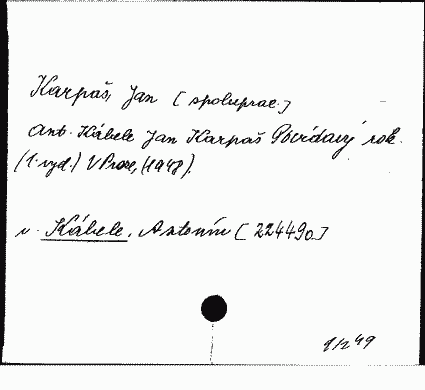 Karpaš, Jan [spoluprac.]
Ant. Kábele Jan Karpaš Povídavý rok.
(1. vyd.) V Praze, (1948).
v. Kábele, Antonín [224490]